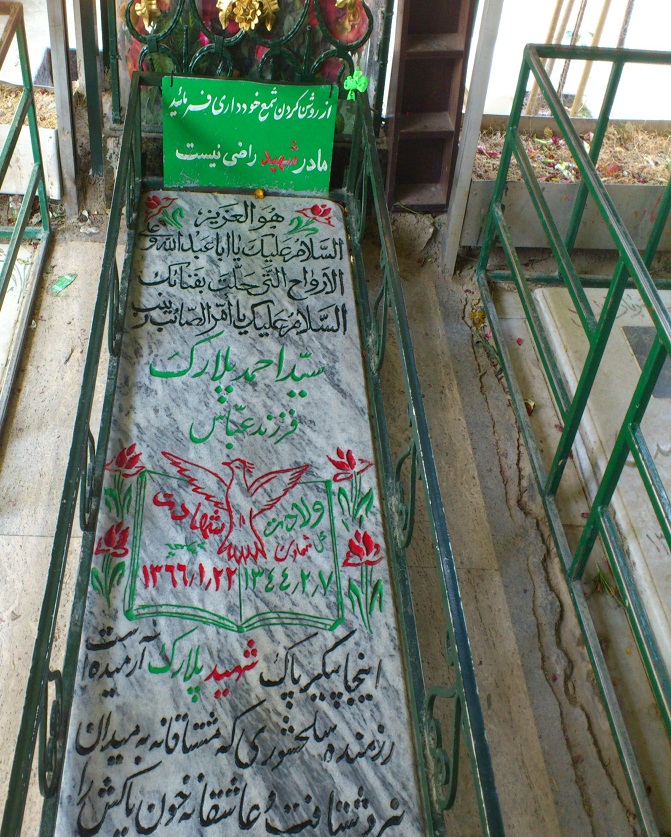 از روشن کردن شمع خودداری فرمائید
مادر شهید راضی نیست
هو العزیز
السلام علیک یا اباعبدالله و علی
الارواح التی حلت بفنائک
السلام علیک یا ام المصائب زینب
سید احمد پلارک
فرزند عباس
ولادت شهادت
۱۳۴۴٫۲٫۷ ۱۳۶۶٫۱٫۲۲
اینجا پیکر پاک شهید پلارک آرمیده است
رزمنده سلحشوری که مشتاقانه به میدان
نبرد شتافت و عاشقانه خون پاکش را